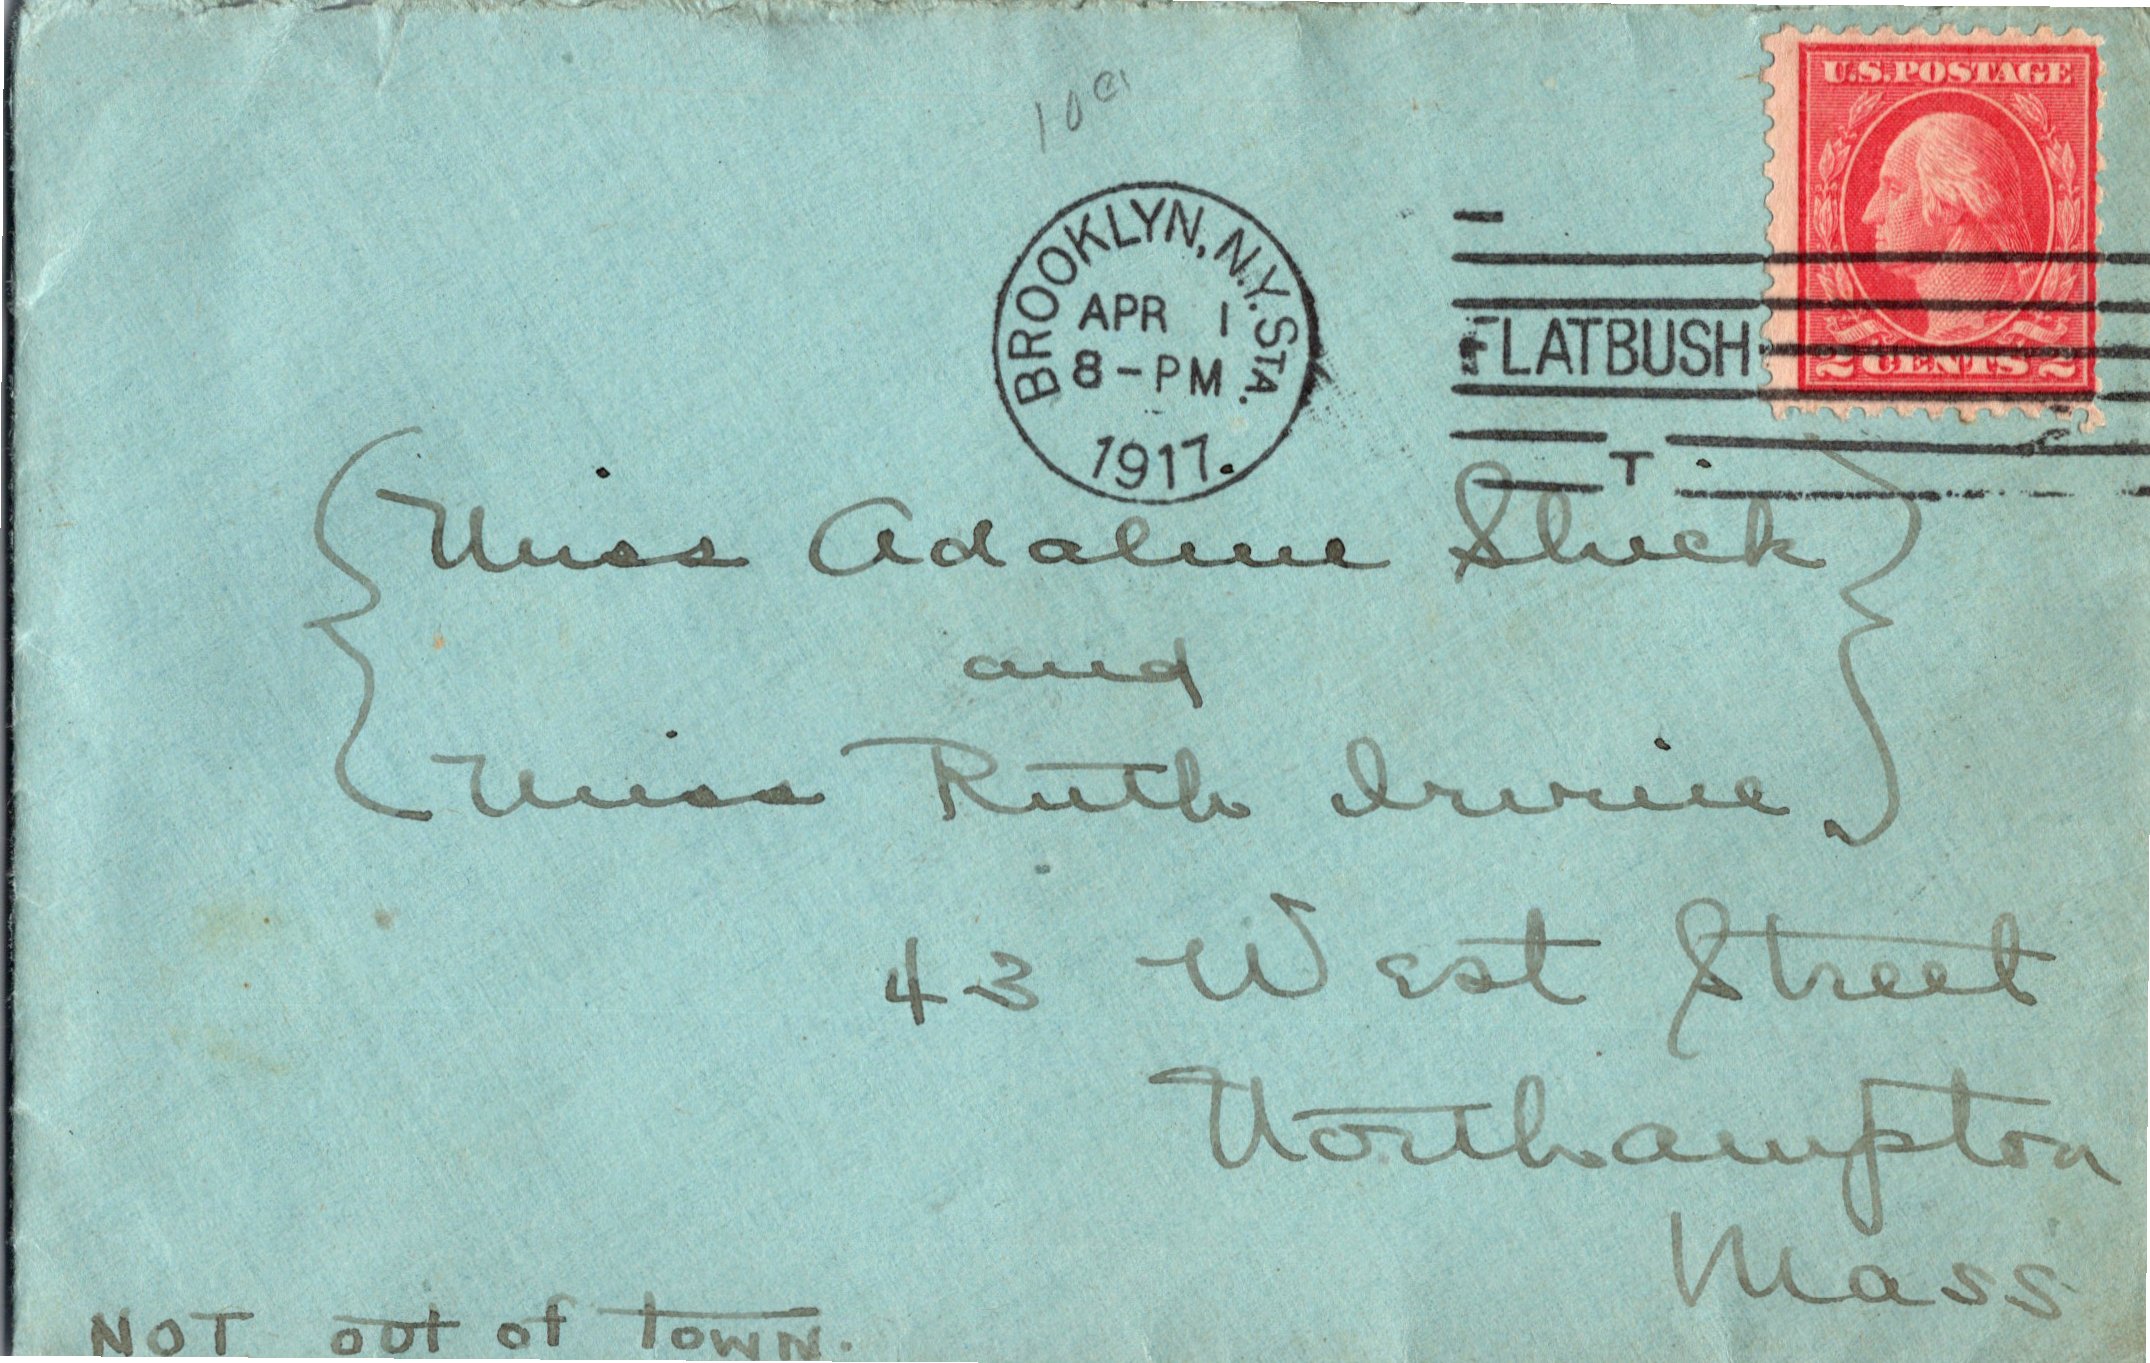 10a
U.S. POSTAGE
BROOKLYN, N.Y. STA.
APR 1
8 - PM
1917.
FLATBUSH
2 CENTS 2
T
Miss Adaline
and
Miss Ruth Irvine,
43 West Street
Northampton
Mass
NOT out of TOWN.